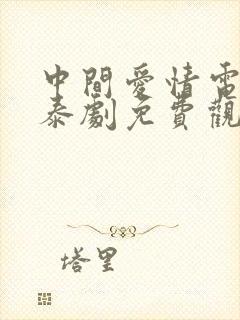 中間愛情電
泰劇免費觀
塔里